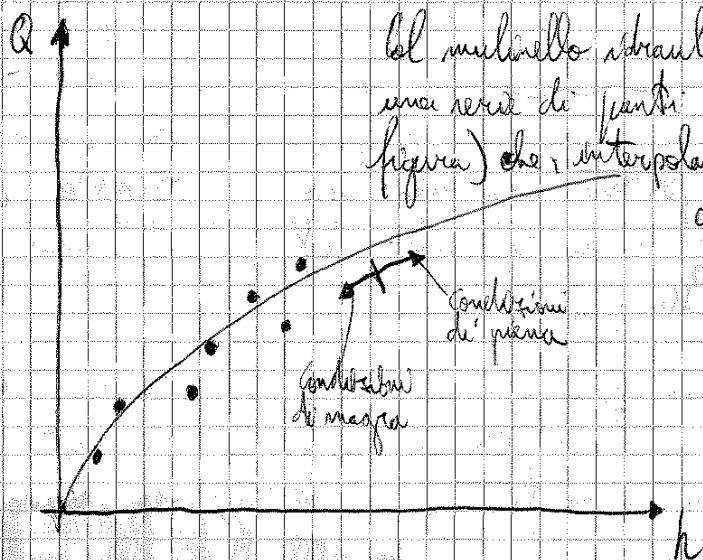 Q
Col mulinello idraul
una serie di punti
figura) che, interpola
Condizioni
di piena
Condizioni
di magra
h